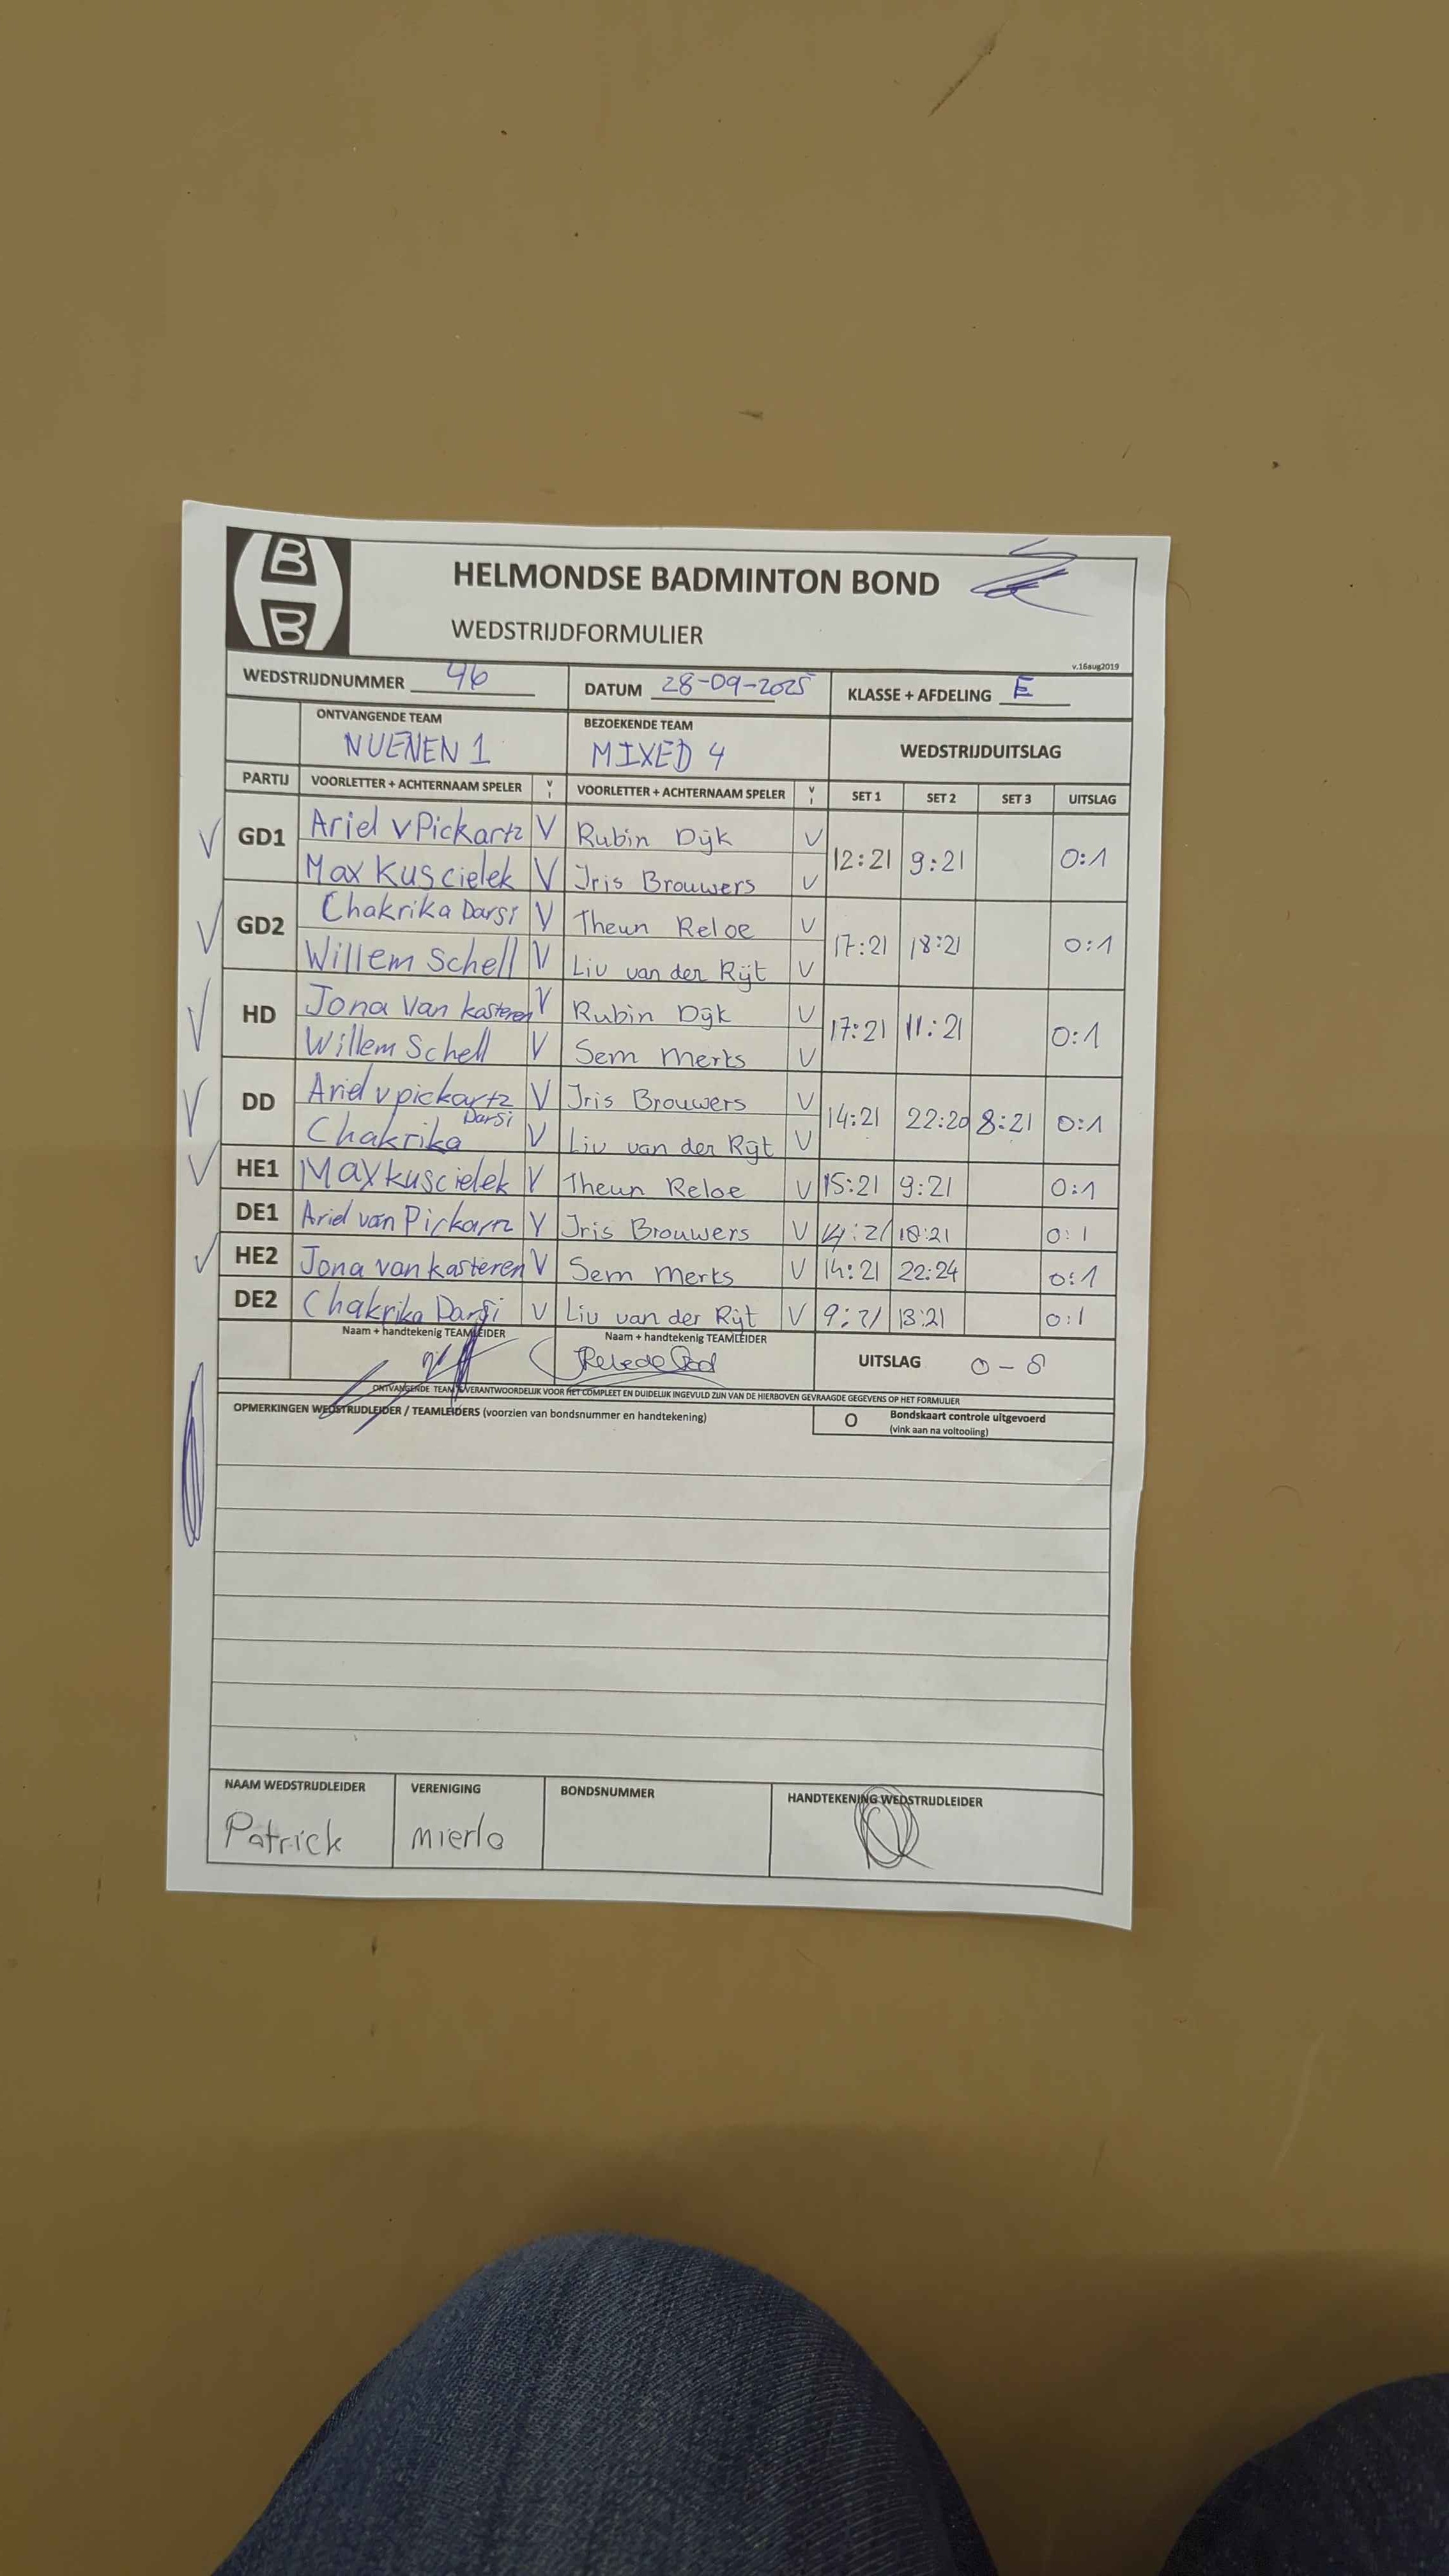 B
B
HELMONDSE BADMINTON BOND
WEDSTRIJDFORMULIER
v.16aug2019
WEDSTRIJDNUMMER 46 DATUM 28-09-2025 KLASSE + AFDELING E
ONTVANGENDE TEAM BEZOEKENDE TEAM
NUENEN 1 MIXED 4 WEDSTRIJDUITSLAG
PARTIJ VOORLETTER + ACHTERNAAM SPELER V I VOORLETTER + ACHTERNAAM SPELER V I SET 1 SET 2 SET 3 UITSLAG
GD1 Ariel v Pickartz V Rubin Dijk V 12:21 9:21 0:1
Max Kuscielek V Iris Brouwers V
GD2 Chakrika Darsi V Theun Reloe V 17:21 18:21 0:1
Willem Schell V Liv van der Rijt V
HD Jona Van kasteren V Rubin Dijk V 17:21 11:21 0:1
Willem Schell V Sem Merks V
DD Ariel v pickartz V Iris Brouwers V 14:21 22:20 8:21 0:1
Chakrika Darsi V Liv van der Rijt V
HE1 Max kuscielek V Theun Reloe V 15:21 9:21 0:1
DE1 Ariel van V Iris Brouwers V 14:21 18:21 0:1
HE2 Jona van kasteren V Sem Merks V 14:21 22:24 0:1
DE2 Chakrika Darsi V Liv van der Rijt V 9:21 13:21 0:1
Naam + handtekenig TEAMLEIDER Naam + handtekenig TEAMLEIDER
UITSLAG 0-8
ONTVANGENDE TEAM VERANTWOORDELIJK VOOR HET COMPLEET EN DUIDELIJK INGEVULD ZIJN VAN DE HIERBOVEN GEVRAAGDE GEGEVENS OP HET FORMULIER
OPMERKINGEN WEDSTRIJDLEIDER / TEAMLEIDERS (voorzien van bondsnummer en handtekening) O Bondskaart controle uitgevoerd
(vink aan na voltooiing)
NAAM WEDSTRIJDLEIDER VERENIGING BONDSNUMMER HANDTEKENING WEDSTRIJDLEIDER
Patrick mierlo